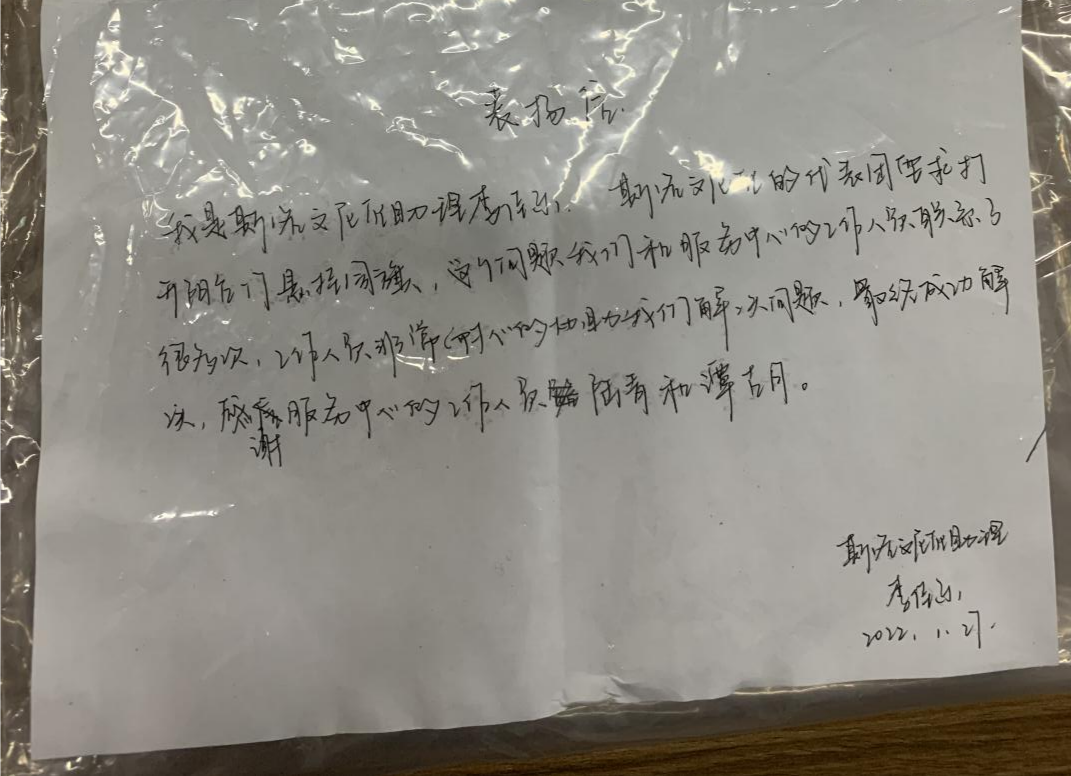 表扬信
我是斯洛文尼亚助理李佳. 斯洛文尼亚的代表团要求打
开阳台门悬挂国旗，这个问题我们和服务中心的工作人员联系了
很多次，工作人员非常耐心的协助我们解决问题，最终成功解
决，感谢服务中心的工作人员陆青和谭古月。
斯洛文尼亚助理
李佳
2022.1.27.